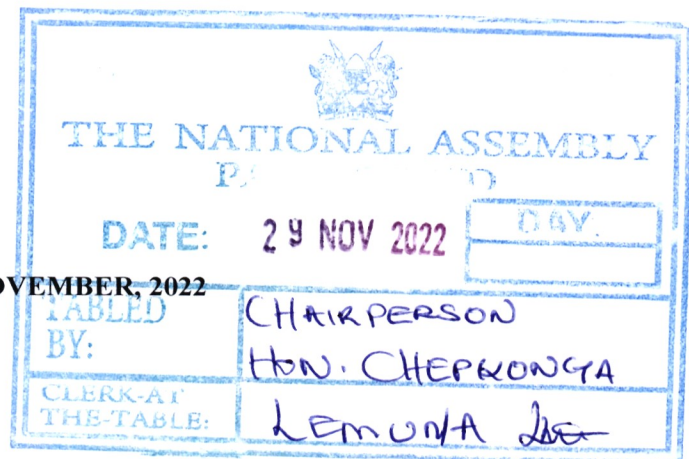 THE NATIONAL ASSEMBLY
DATE: 29 NOV 2022 DAY.
OVEMBER, 2022
TABLED BY: CHAIRPERSON
HON. CHEPKONGA
CLERK-AT THE-TABLE: LEMUNA